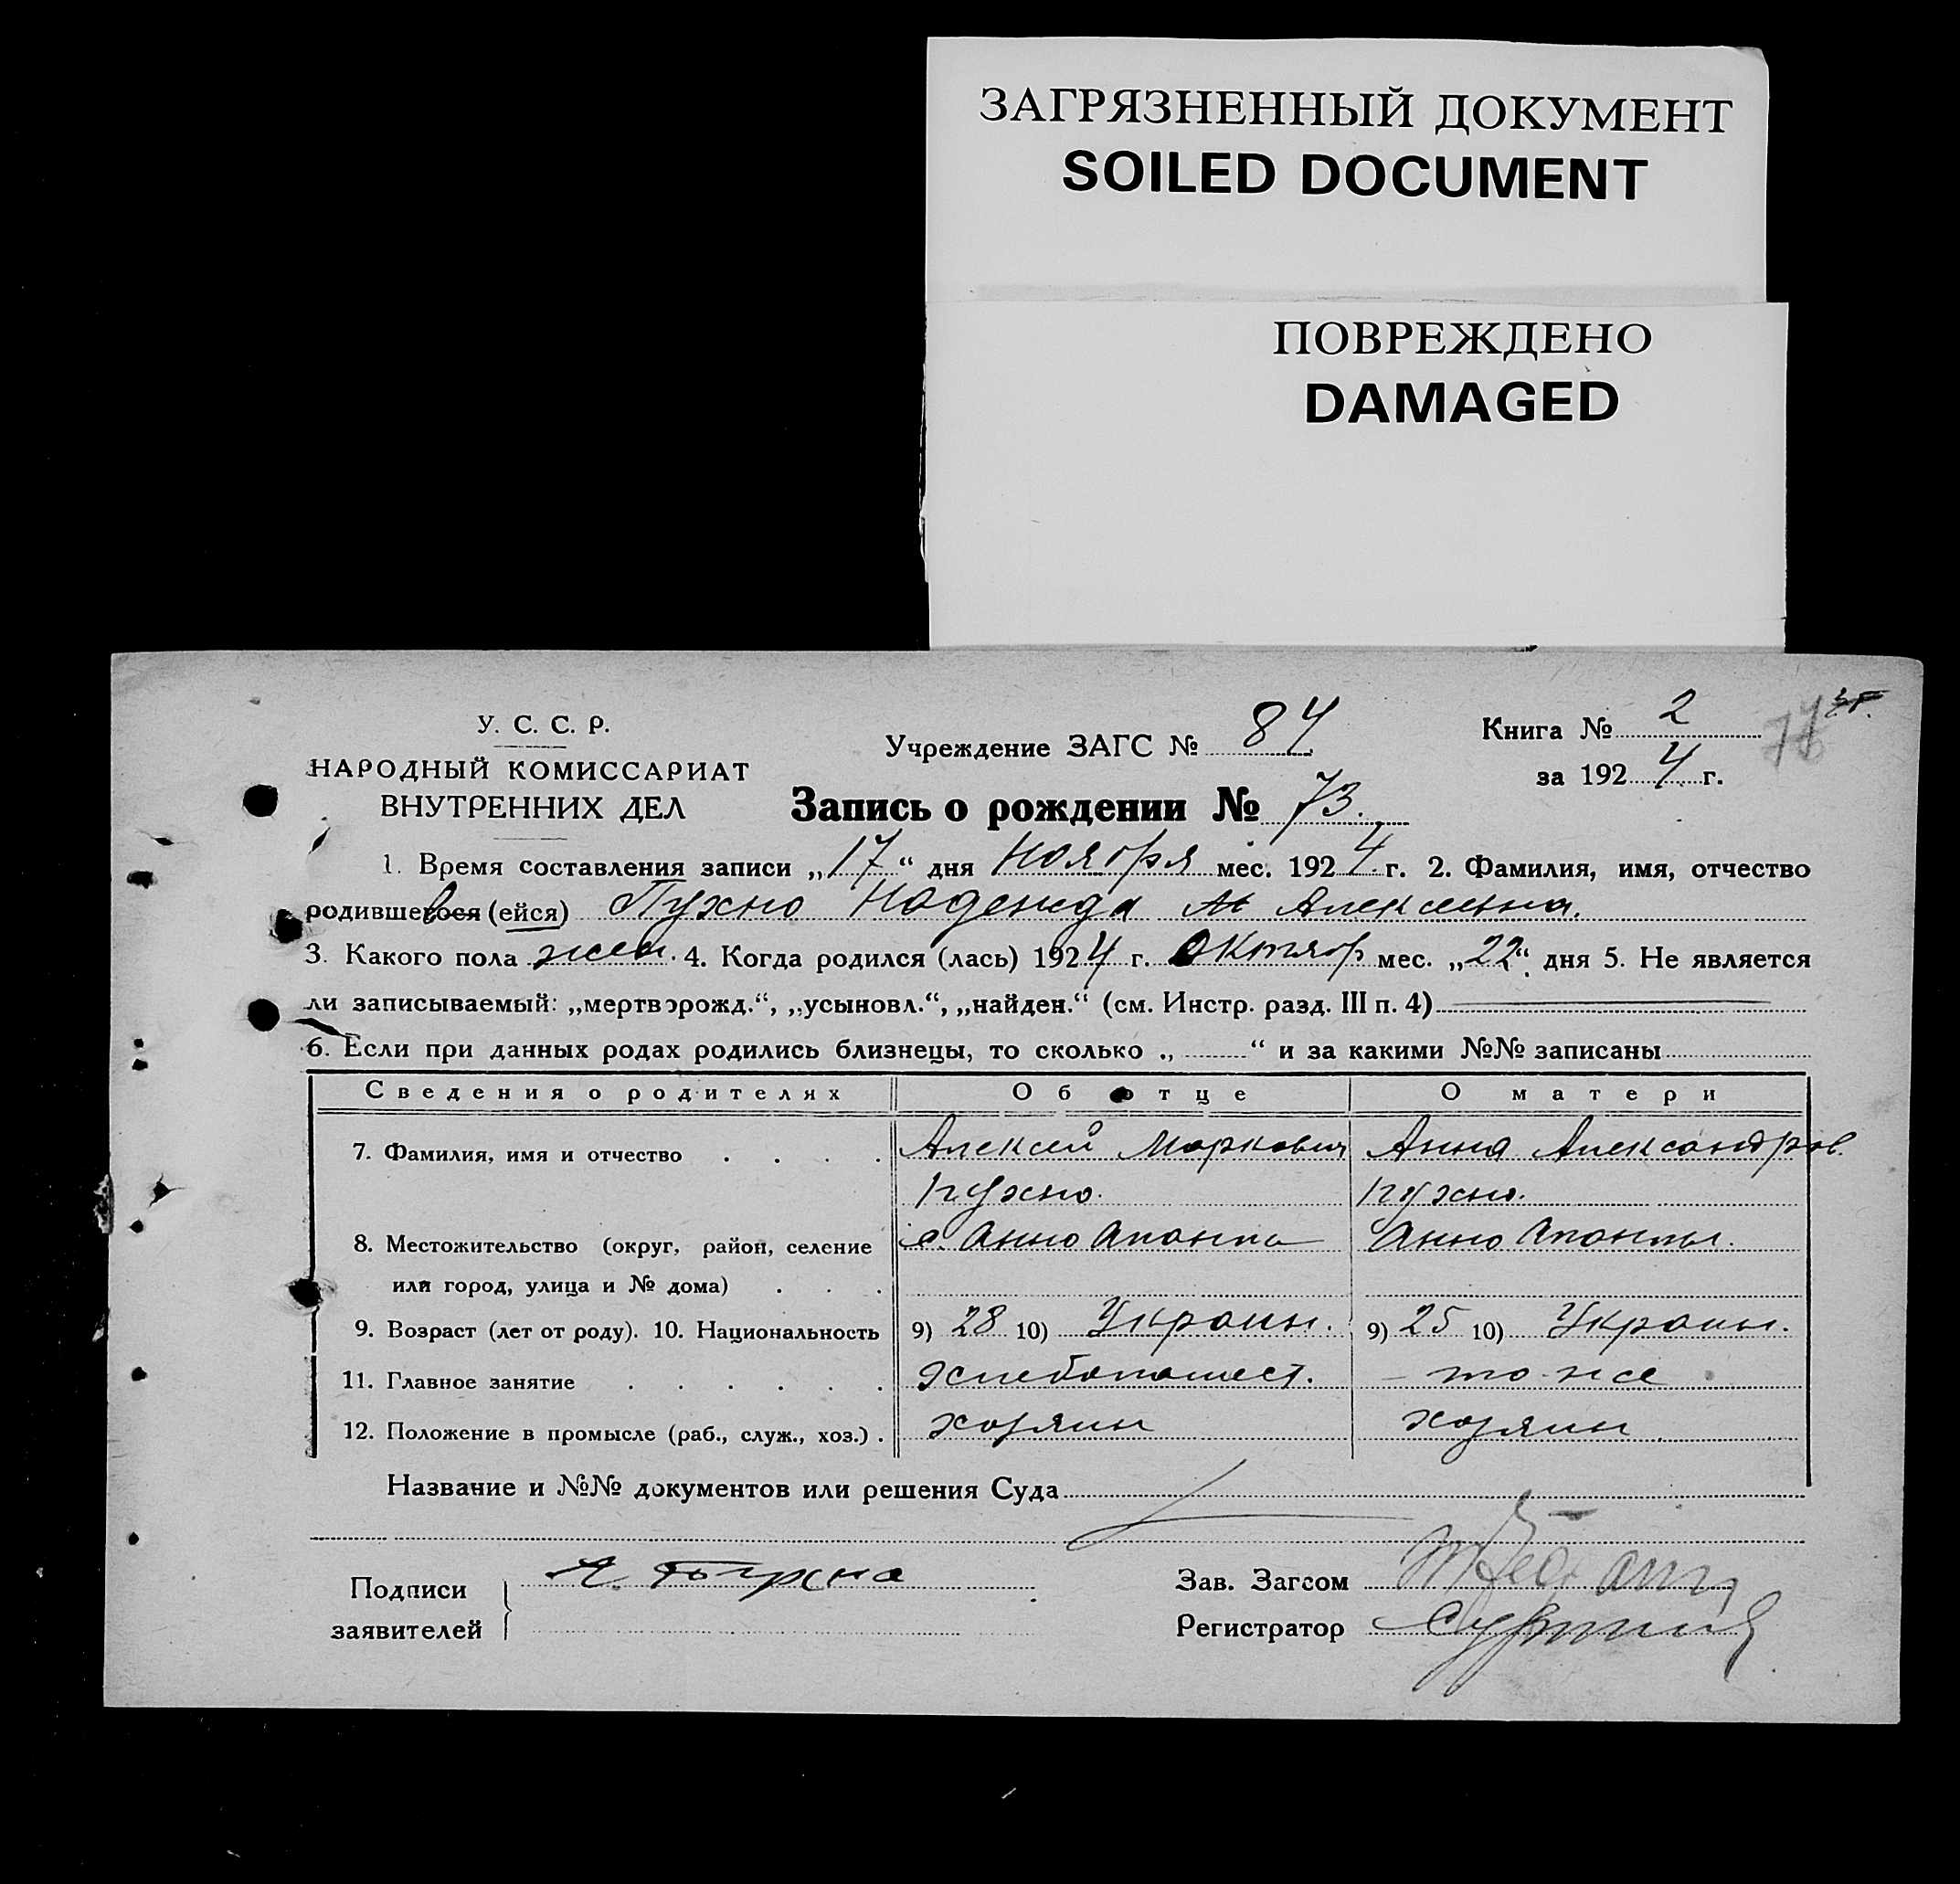 ЗАГРЯЗНЕННЫЙ ДОКУМЕНТ
SOILED DOCUMENT
ПОВРЕЖДЕНО
DAMAGED
У. С. С. Р.
НАРОДНЫЙ КОМИССАРИАТ
ВНУТРЕННИХ ДЕЛ
Учреждение ЗАГС № 84
Книга № 2
за 1924 г.
Запись о рождении № 73.
1. Время составления записи „17“ дня Ноября мес. 1924 г. 2. Фамилия, имя, отчество
родившегося (ейся) Пухно Надежда Алексеевна.
3. Какого пола жен. 4. Когда родился (лась) 1924 г. Октяр мес. „22“ дня 5. Не является
ли записываемый: „мертворожд.“, „усыновл.“, „найден.“ (см. Инстр. разд. III п. 4)
6. Если при данных родах родились близнецы, то сколько „ “ и за какими №№ записаны
Сведения о родителях Об отце О матери
7. Фамилия, имя и отчество Алексей Маркович Анна Александров.
Пухно. Пухно.
8. Местожительство (округ, район, селение с. Анно Анно
или город, улица и № дома)
9. Возраст (лет от роду). 10. Национальность 9) 28 10) Украин. 9) 25 10) Украин.
11. Главное занятие хлебопашест. – то-же
12. Положение в промысле (раб., служ., хоз.) хозяин хозяин
Название и №№ документов или решения Суда
Подписи
заявителей
Зав. Загсом
Регистратор